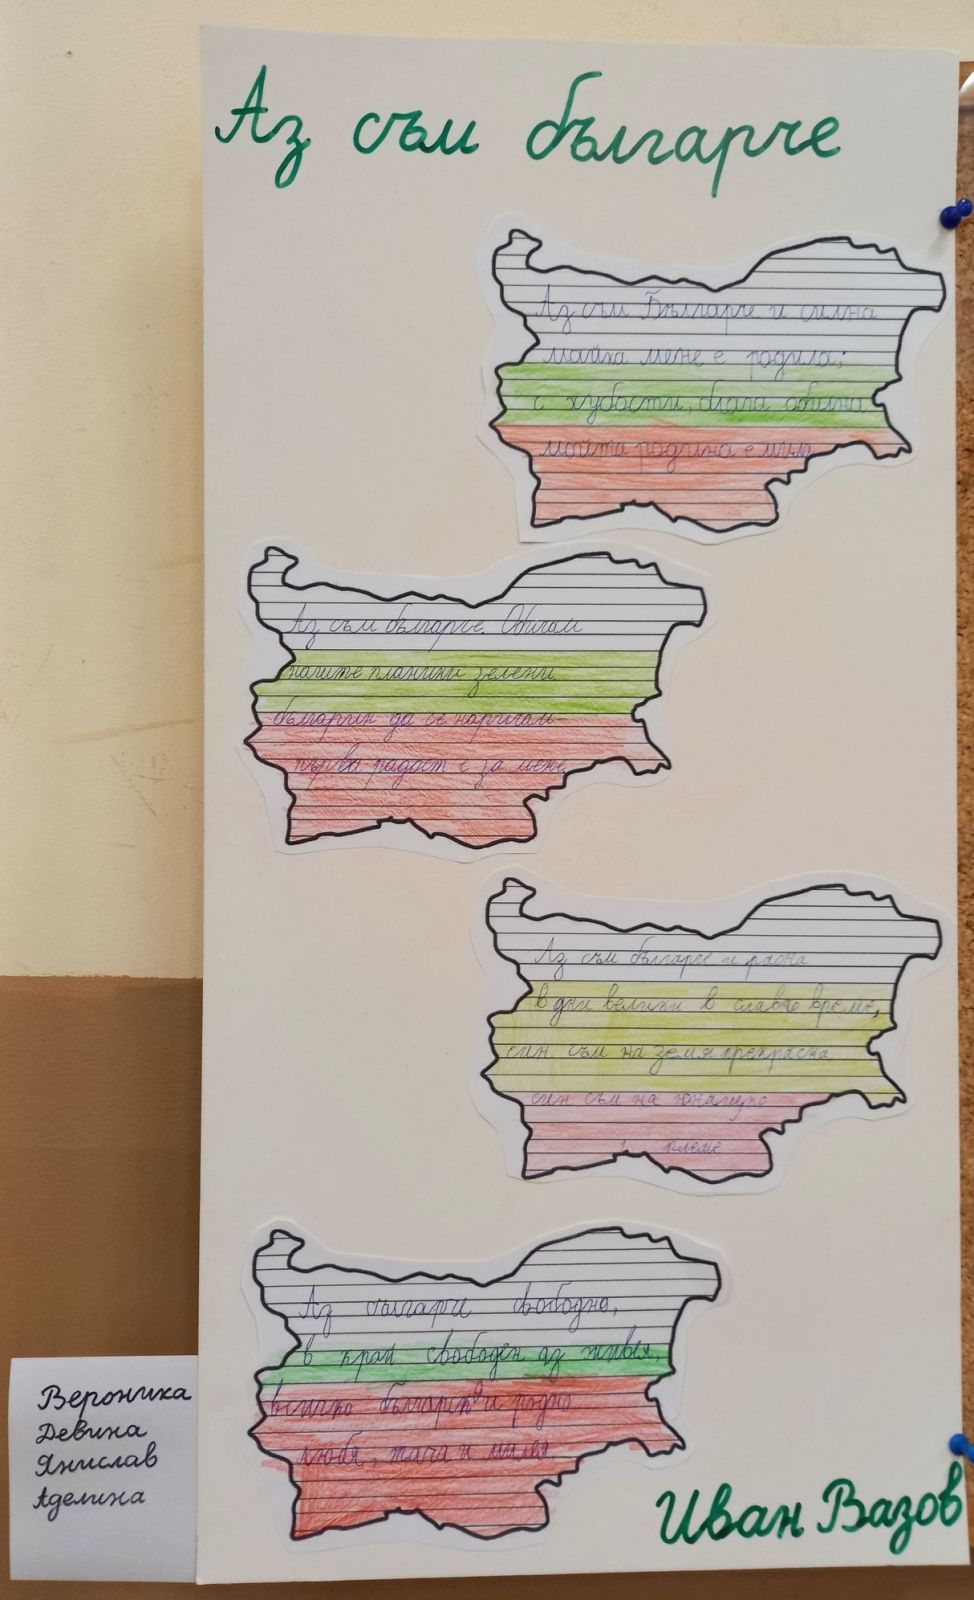 Аз съм българче
Аз съм Българче и силна
майка мене е родила;
с хубости, блага обилна
мойта родина е мила
Аз съм българче. Обичам
нашите планини зелени
българин да се наричам-
първа радост е за мене
Аз съм българче и расна
в дни велики в славно време,
син съм на земя прекрасна
син съм на юнашко
племе
Аз свободно,
в край свободен аз живея,
всичко българско и родно
любя, тача и милея.
Иван Вазов
Вероника
Девина
Янислав
Аделина